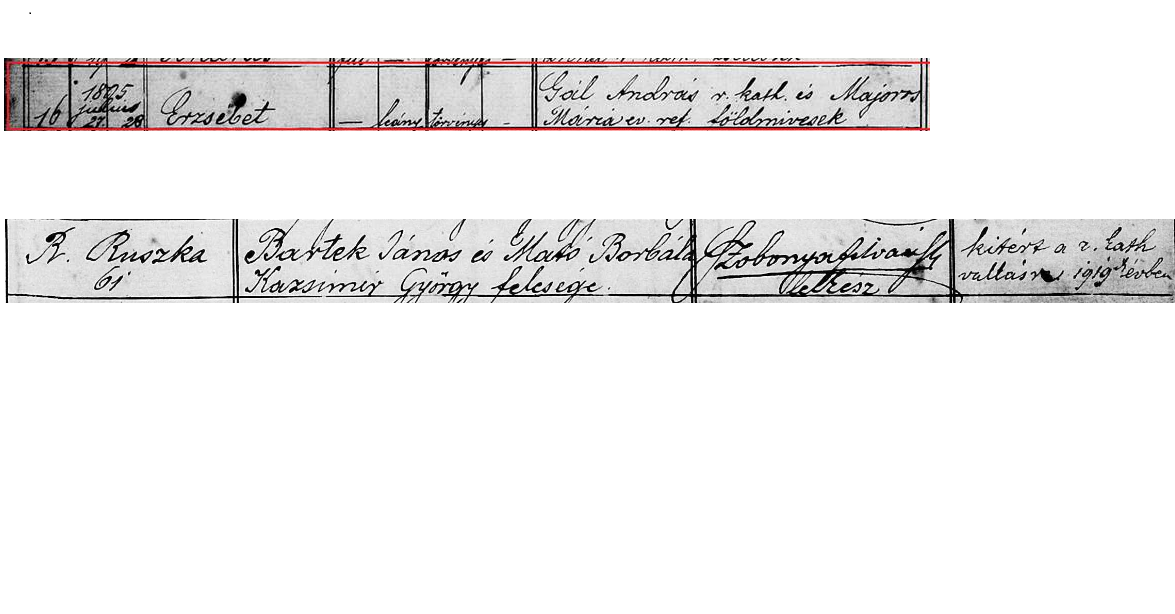 1895
július
16 27 28 Erzsébet — leány törvényes — Gál András r. kath. és Majoros
Mária ev. ref. földmivesek
R. Ruszka Bartek János és Mató Borbála Szobonya István kitért a r. kath
61 Kazsimir György felesége. lelkész vallásra 1919 évben